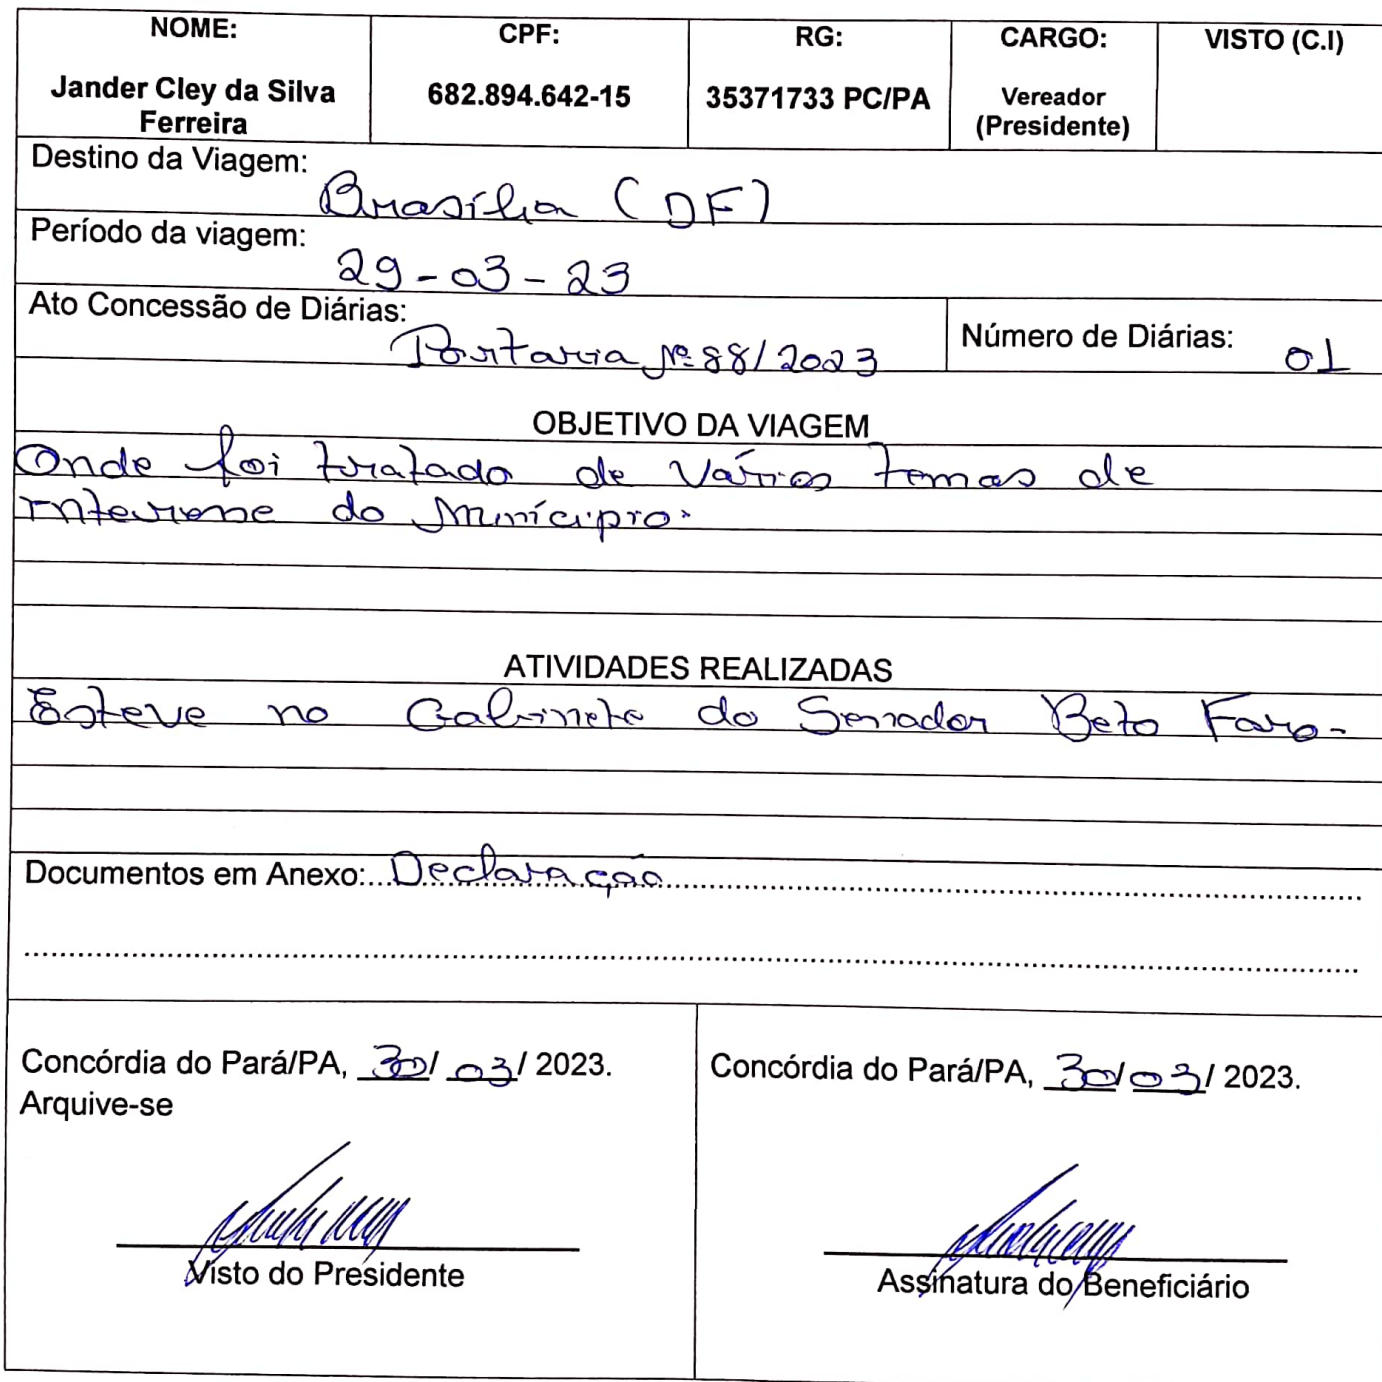 NOME: CPF: RG: CARGO: VISTO (C.I)
Jander Cley da Silva Ferreira 682.894.642-15 35371733 PC/PA Vereador (Presidente)
Destino da Viagem: Brasília (DF)
Período da viagem: 29-03-23
Ato Concessão de Diárias: Portaria Nº 88/2023 Número de Diárias: 01
OBJETIVO DA VIAGEM
Onde foi tratado de Vários temas de
interesse do Município.
ATIVIDADES REALIZADAS
Esteve no Gabinete do Senador Beto Faro.
Documentos em Anexo: Declaração
Concórdia do Pará/PA, 30/ 03/ 2023.
Arquive-se
Visto do Presidente
Concórdia do Pará/PA, 30/ 03/ 2023.
Assinatura do Beneficiário